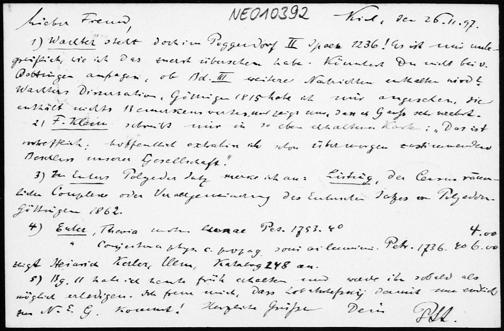 NEO10392
Lieber Freund,
Kiel, den 26.11.97.
1) Wachter steht doch im Poggendorf II Spalte 1236! Es ist mir unbe-
greiflich, wie ich das zuerst übersehen habe. Könntest Du nicht bei v.
Oettingen anfragen, ob Bd. III weitere Nachrichten enthalten wird?
Wachters Dissertation, Göttingen 1815 habe ich mir angesehen, sie
enthält nichts Bemerkenswertes, und zeigt nur, dass er Gauss sehr verehrt.
2) F. Klein schreibt mir in so eben erhaltener Karte: „Das ist
vortrefflich; hoffentlich erhalten Sie schon übermorgen zustimmenden
Beschluss unserer Gesellschaft!
3) Zu Eulers Polyeder Satz merke ich an: Listing, Der Census räum-
licher Complexe oder Verallgemeinerung des Eulerschen Satzes von Polyedern
Göttingen 1862.
4) Euler, Theoria motus lunae Petr. 1753. 40 4.00
" Conjectura phys. c. propag. soni ac luminis. Petr. 1736. 40 6.00
zeigt Heinrich Kerler, Ulm, Katalog 248 an.
5) Bg. 11 habe ich heute früh erhalten und werde ihn sobald als
möglich erledigen. Ich freue mich, dass Lobatschefskij damit nun endlich
zur N. E. G. kommt! Herzliche Grüsse Dein
PSt.